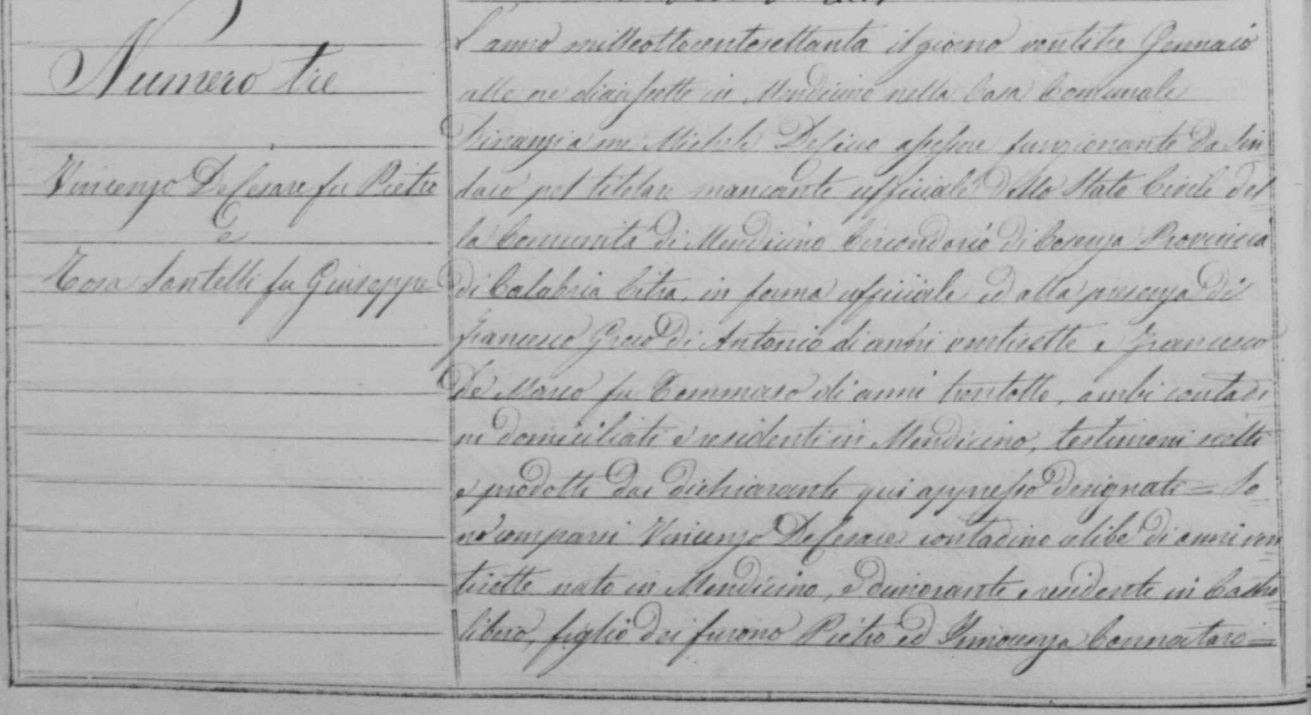 Numero tre
Vincenzo DeCesare fu Pietro
e
Rosa Santelli fu Giuseppe
L'anno milleottocentosettanta il giorno ventitre Gennaio
alle ore diciassette in Mendicino nella Casa Comunale
Dinanzi a me Michele assessore funzionante da Sin
daco pel titolare mancante ufficiale dello Stato Civile del
la Comunità di Mendicino Circondario di Cosenza Provincia
di Calabria Citra, in forma ufficiale ed alla presenza di
Francesco Greco di Antonio di anni ventisette e Francesco
De Marco fu Tommaso di anni trentotto, ambi contadi
ni domiciliati e residenti in Mendicino, testimoni scelti
e prodotti dai dichiaranti qui appresso designati = So
no comparsi Vincenzo DeCesare contadino celibe di anni ven
tisette nato in Mendicino, e dimorante e residente in Castro
libero, figlio dei furono Pietro ed Innocenza =